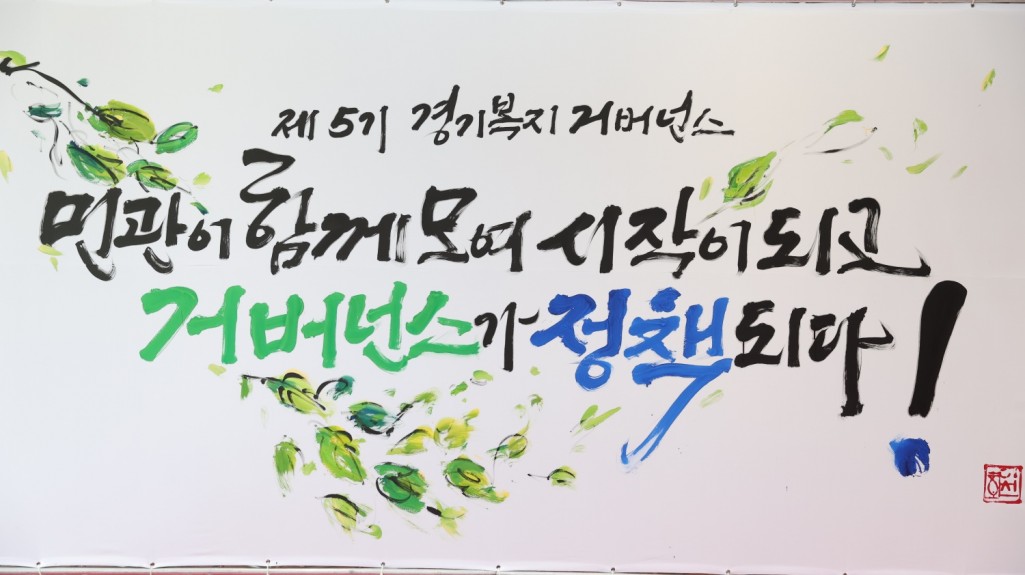 제5기 경기복지 거버넌스
민관이 함께 모여 시작이 되고
거버넌스가 정책되다!